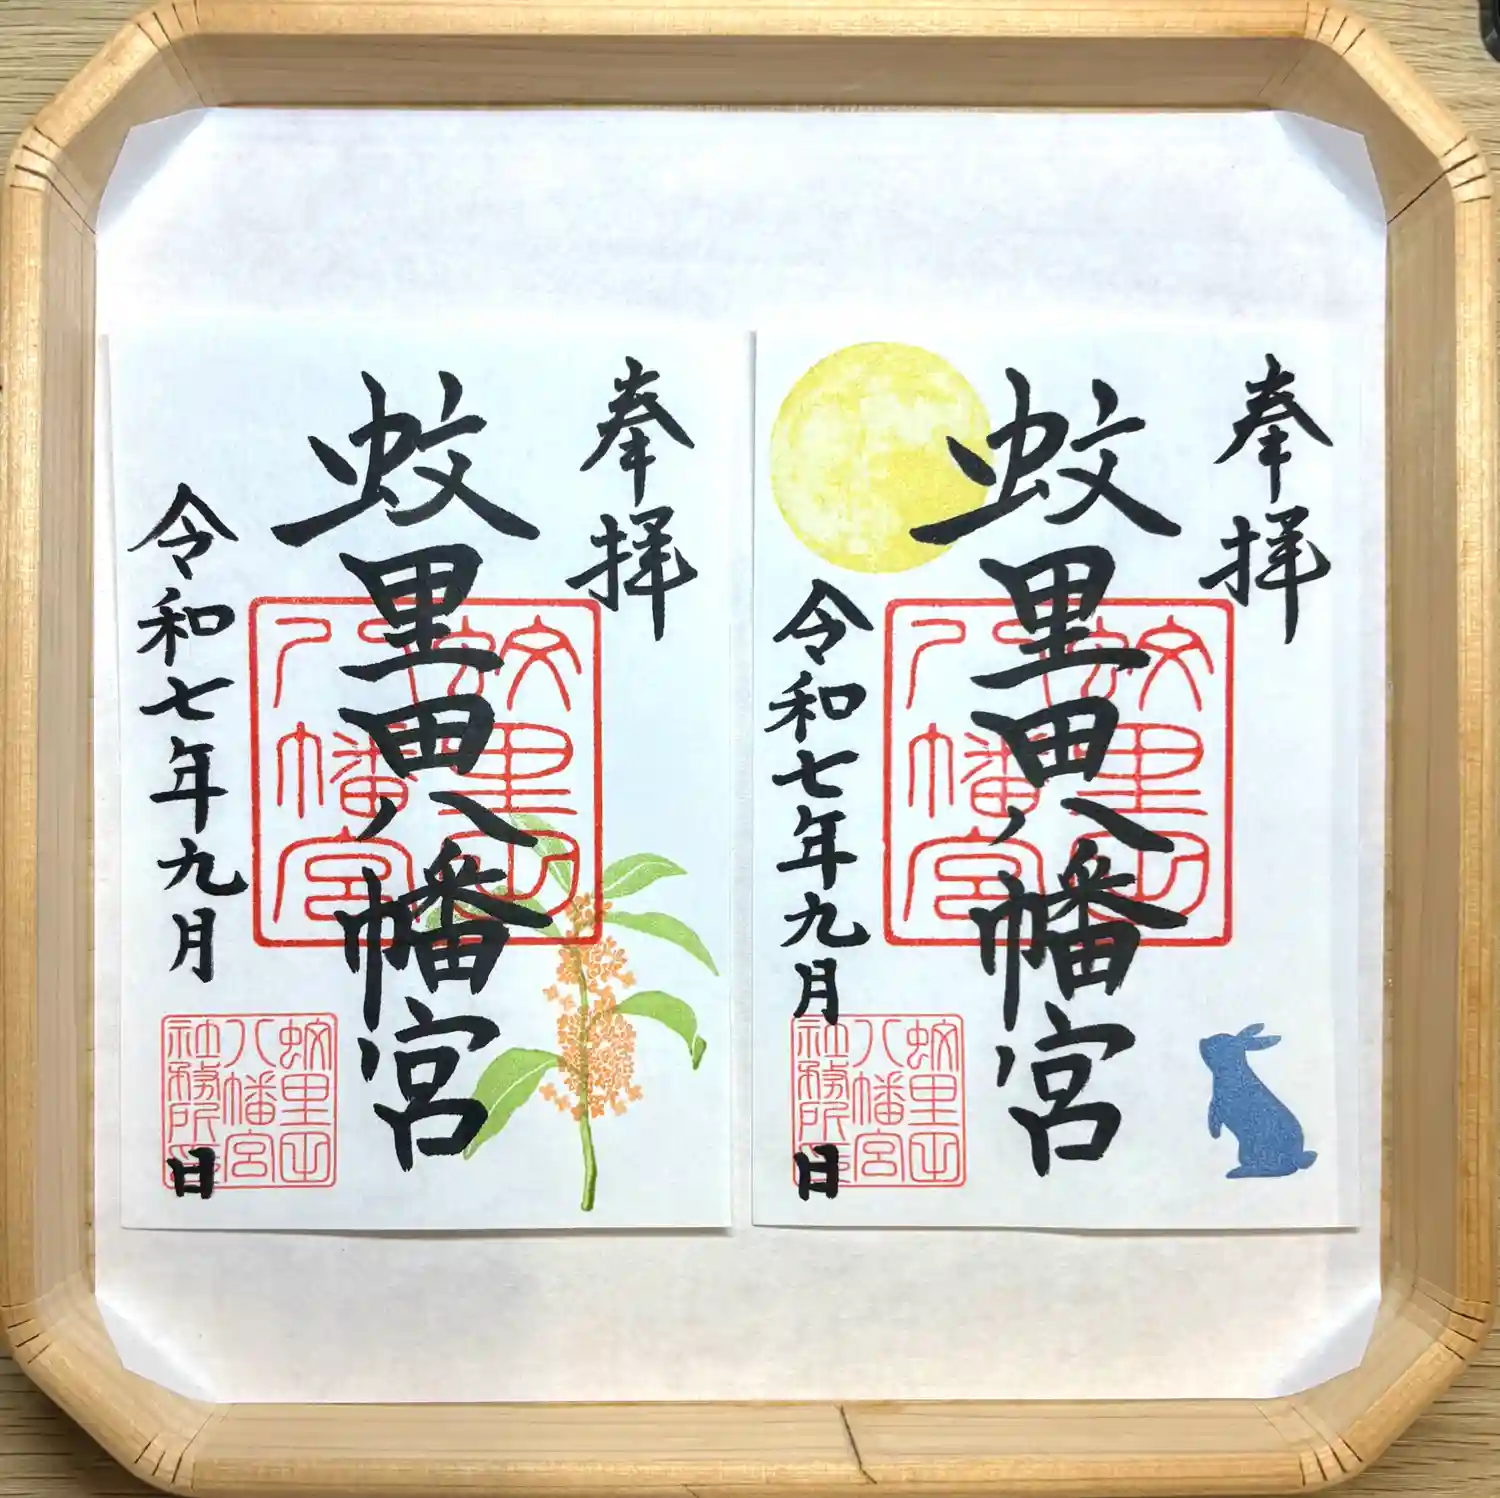 奉拝
蚊里田八幡宮
令和七年九月 日
蚊里田八幡宮
蚊里田
八幡宮
社務所
奉拝
蚊里田八幡宮
令和七年九月 日
蚊里田八幡宮
蚊里田
八幡宮
社務所